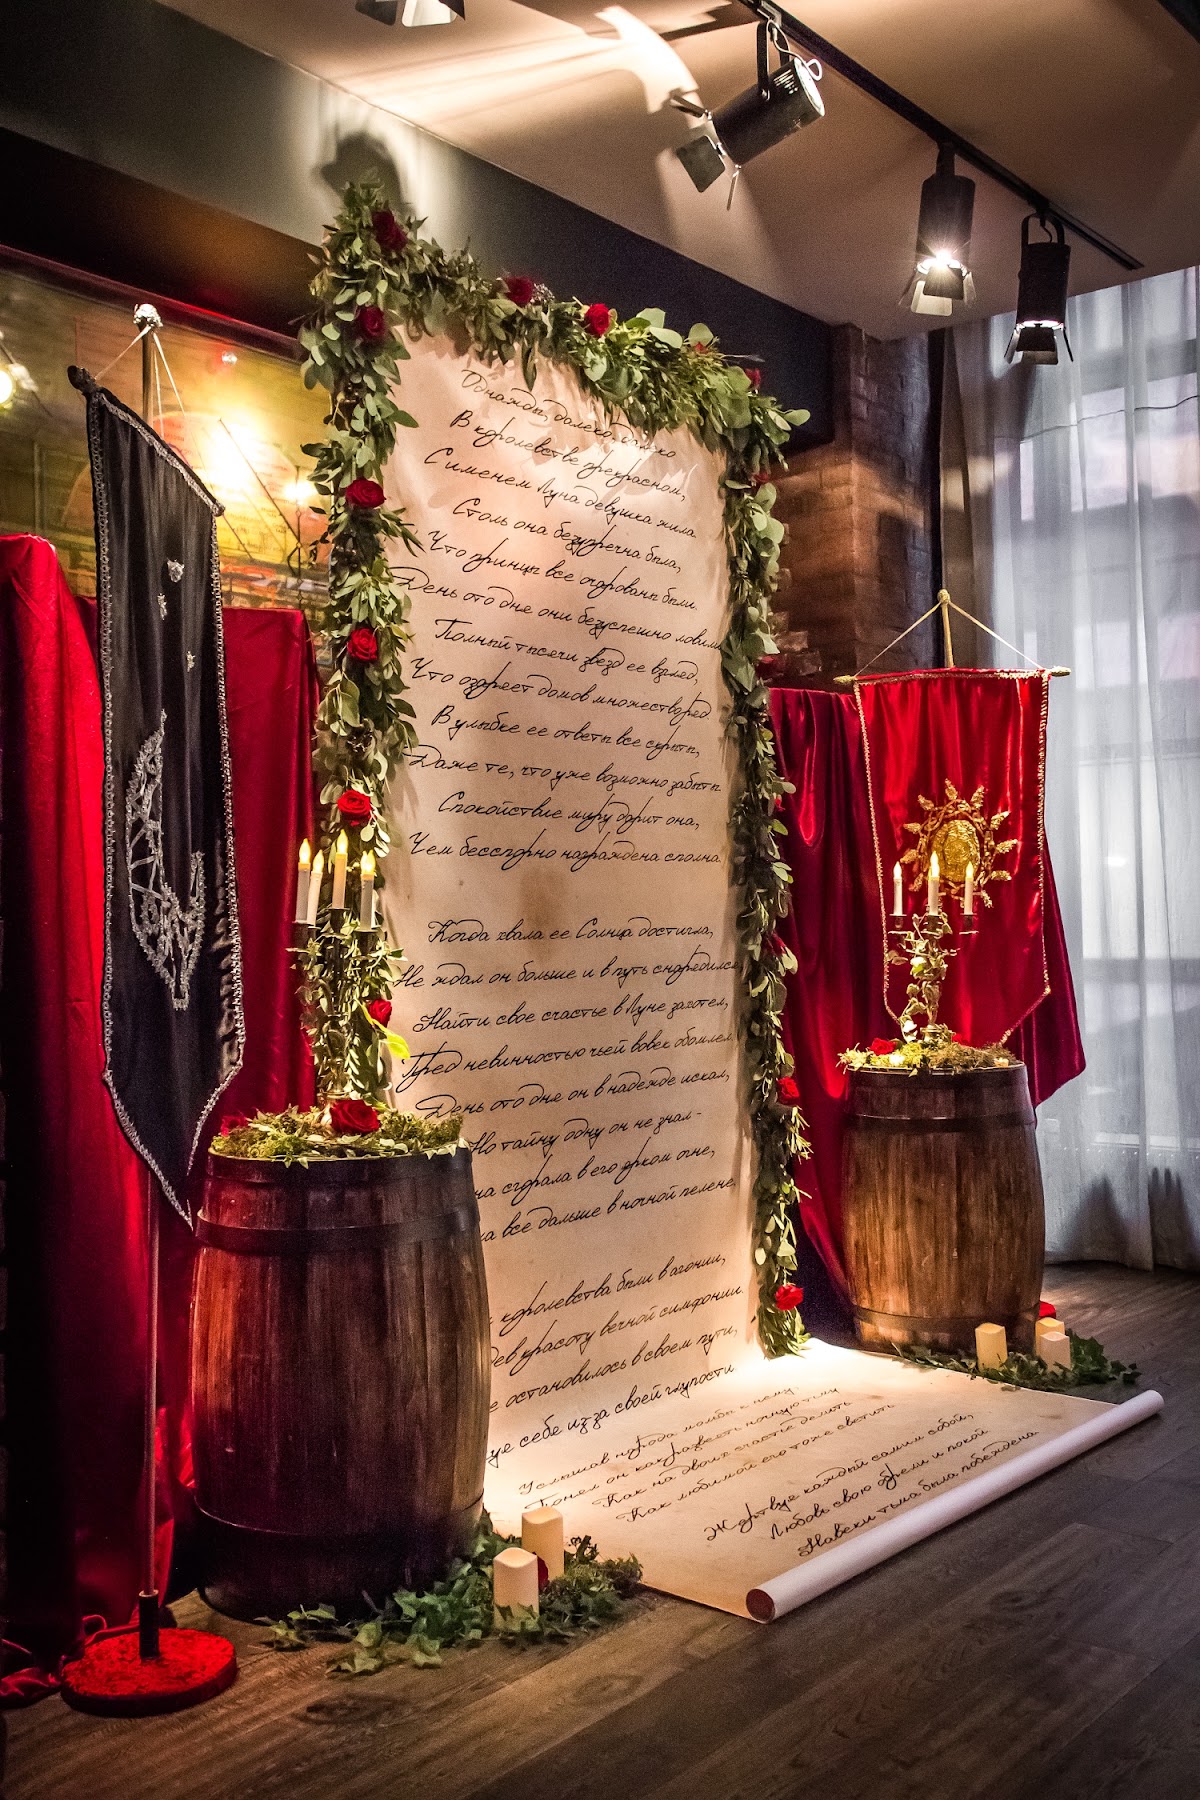 Однажды, далеко далеко
В королевстве прекрасном,
С именем Луна девушка жила
Столь она безупречна была,
Что принцы все очарованы были.
День ото дня они безуспешно ловили
Полный тысячи звезд ее взгляд,
Что озаряет домов множество ряд.
В улыбке ее ответы все скрыты,
Даже те, что уже возможно забыты
Спокойствие миру дарит она,
Чем бесспорно награждена сполна.
Когда хвала ее Солнца достигла,
Не ждал он больше и в путь снарядился
Найти свое счастье в Луне захотел,
Пред невинностью чьей вовек обомлел.
День ото дня он в надежде искал,
Но тайну одну он не знал -
на сгорала в его ярком огне,
на все дальше в ночной пелене,
королевства были в агонии,
дев красоту вечной симфонии.
е остановилось в своем пути,
уе себе из-за своей глупости
Услышав народа мольбы к нему
Понял он как развеять ночную тьму
Как на двоих счастье делить
Как любимой его тоже светить
Жертвуя каждый самим собой,
Любовь свою обрели и покой
Навеки тьма была побеждена